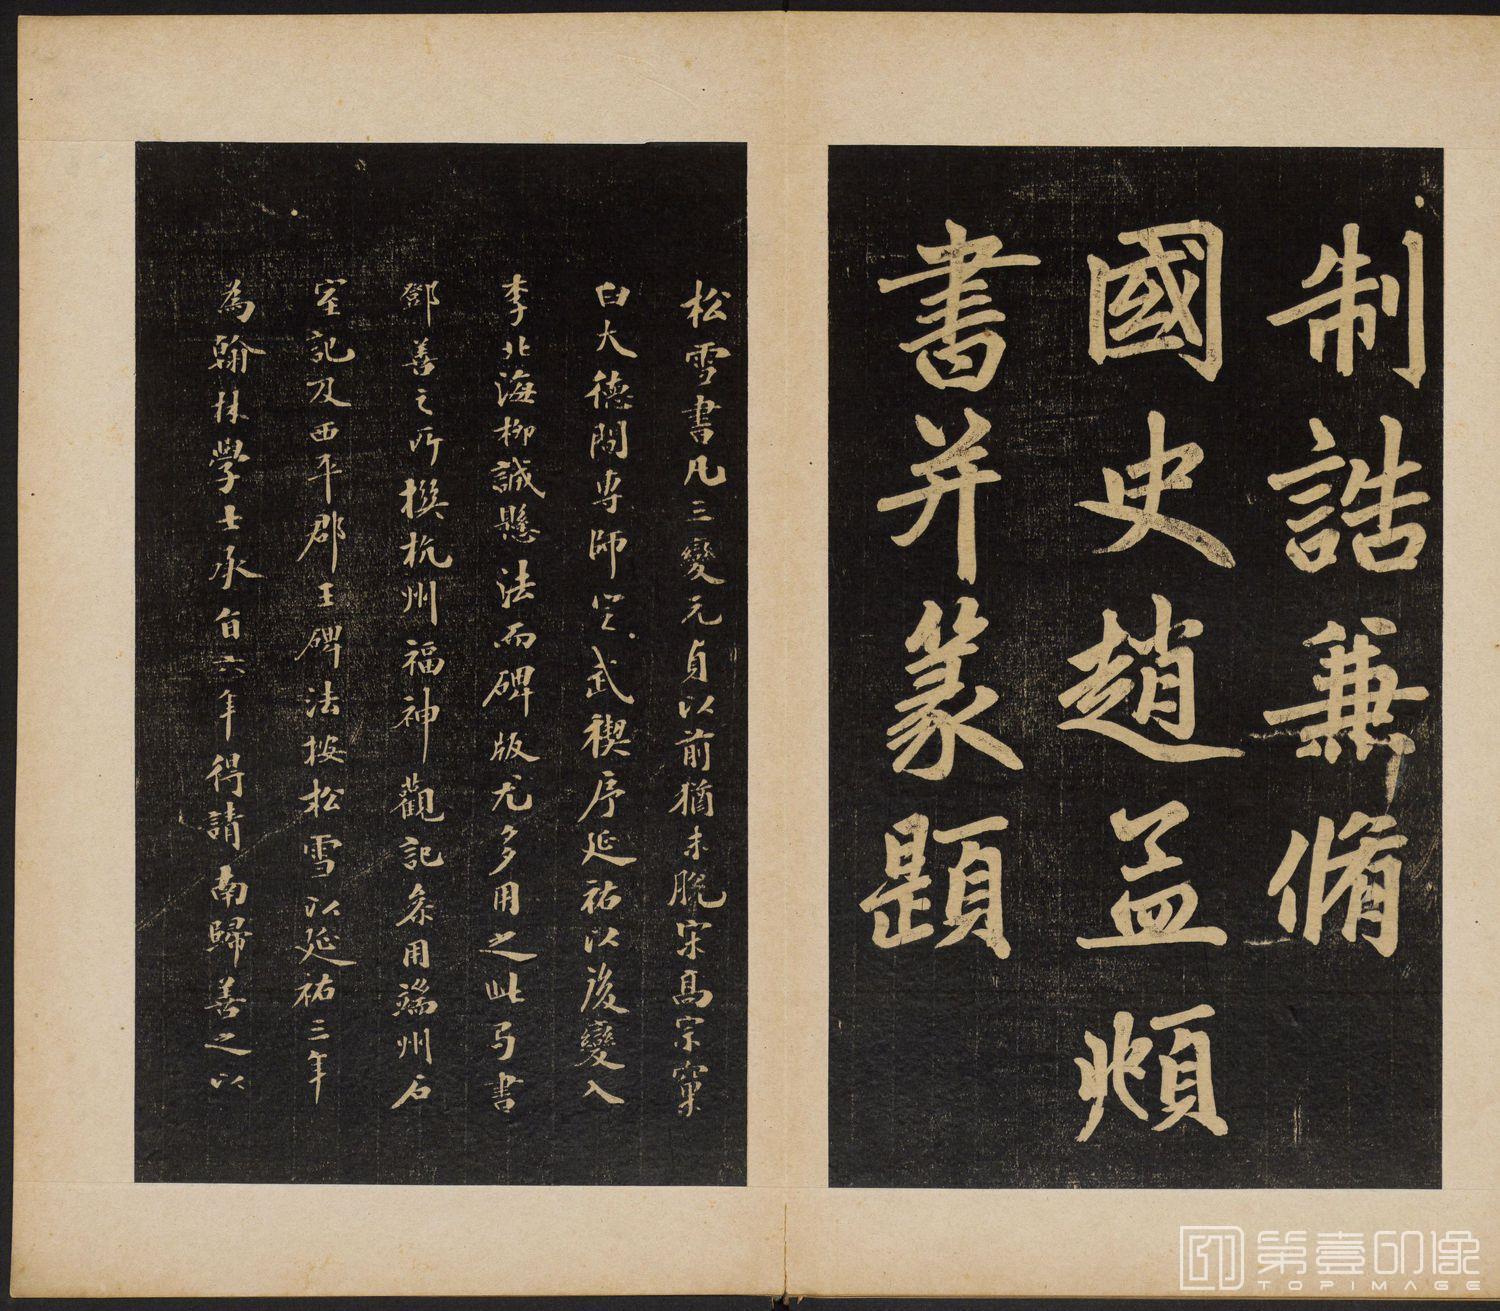 制誥兼脩
國史趙孟頫
書并篆題
松雪書凡三變元貞以前猶未脫宋高宗窠
臼大德間專師定武禊序延祐以後變入
李北海柳誠懸法而碑版尤多用之此与書
鄧善之所撰杭州福神觀記參用端州石
室記及西平郡王碑法按松雪以延祐三年
為翰林學士承旨六年得請南歸善之以
第壹印像
TOPIMAGE